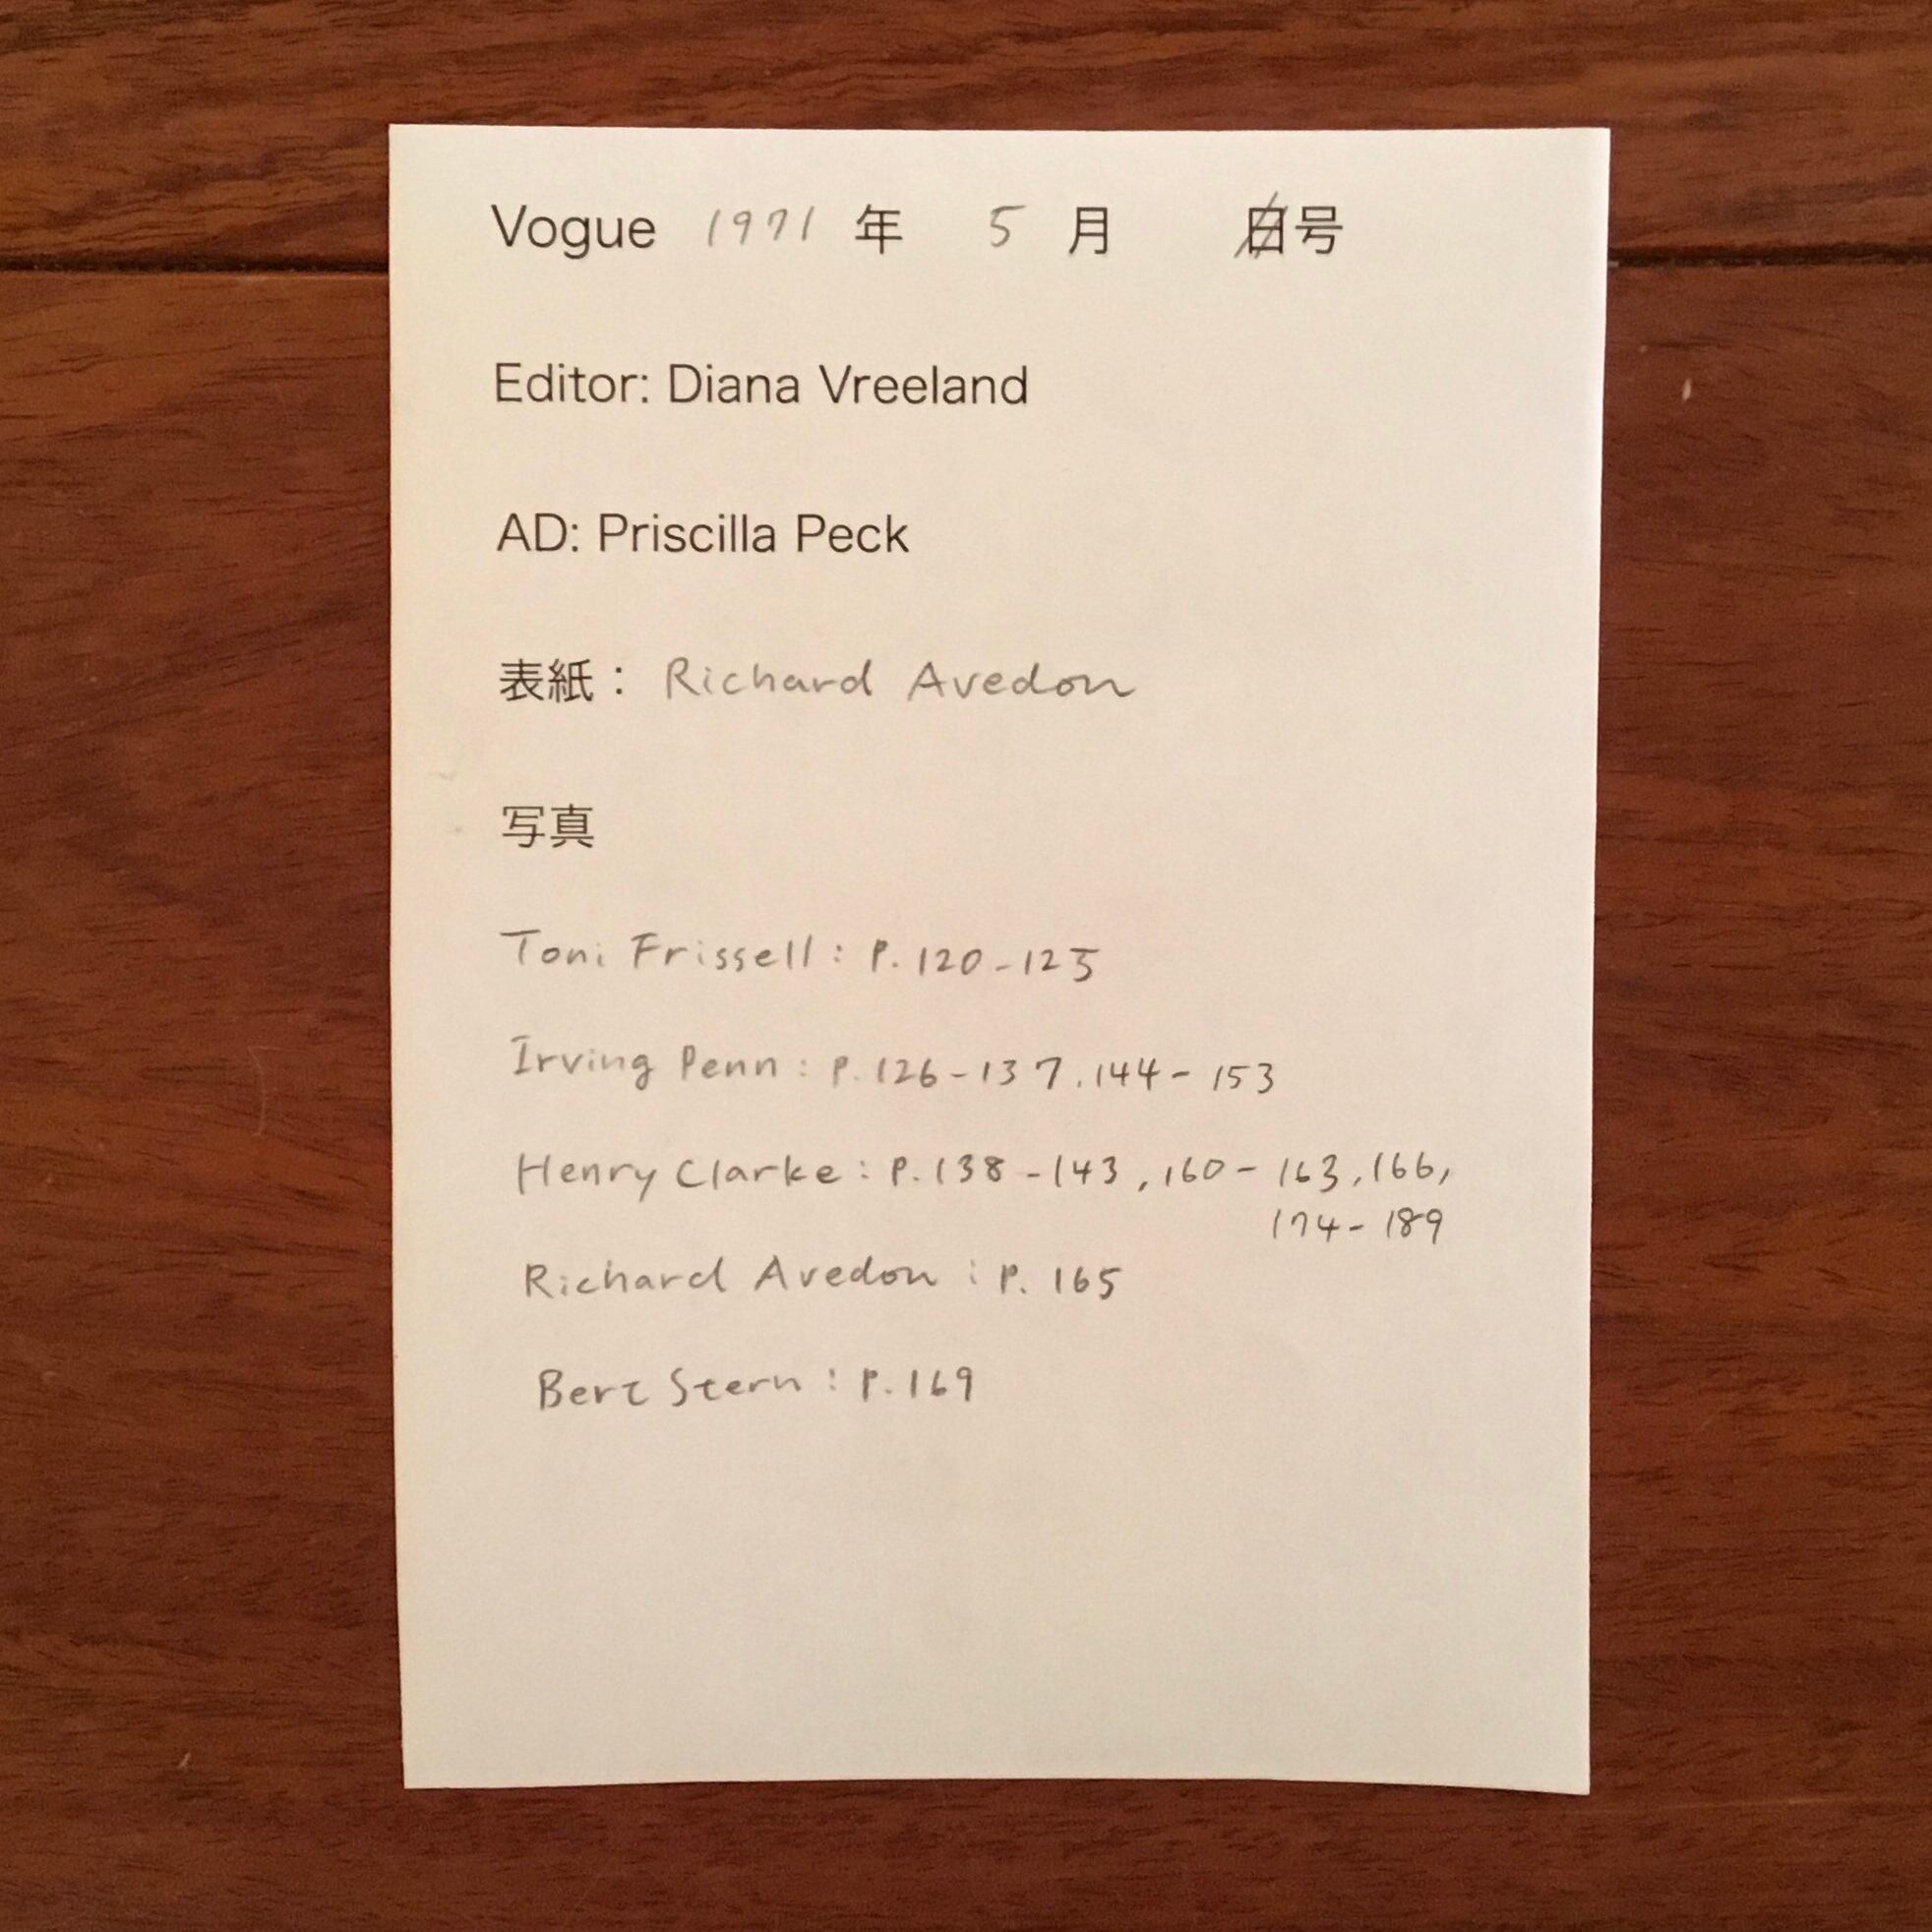 Vogue 1971 年 5 月 日号
Editor: Diana Vreeland
AD: Priscilla Peck
表紙： Richard Avedon
写真
Toni Frissell : P. 120-125
Irving Penn : P. 126-137. 144-153
Henry Clarke : P. 138-143, 160-163, 166,
174-189
Richard Avedon : P. 165
Bert Stern : P. 169